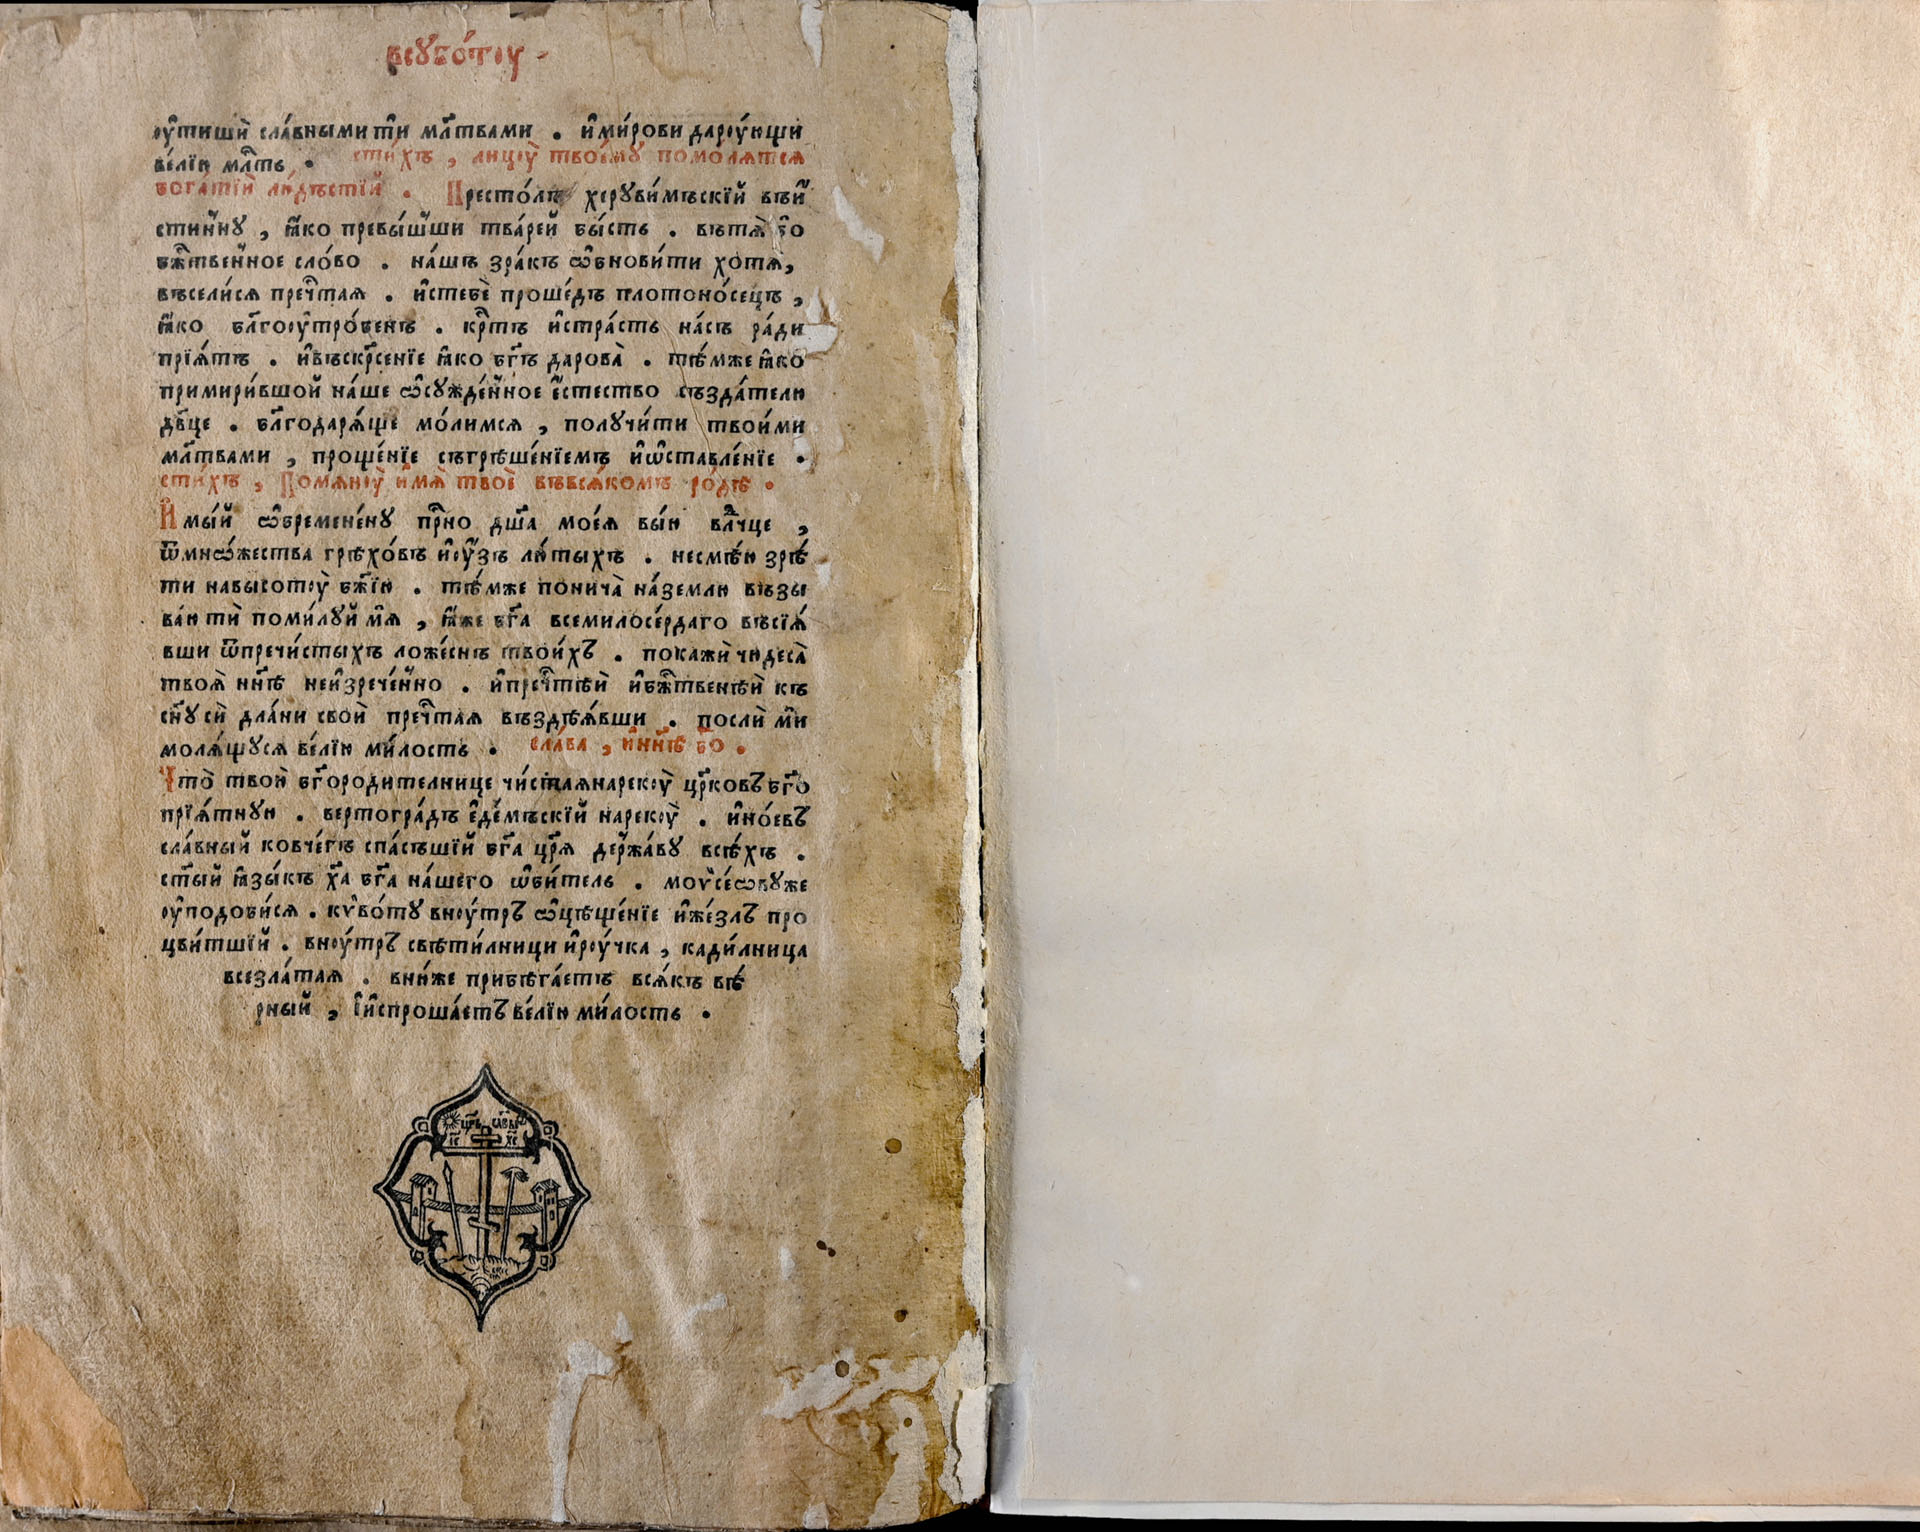 всꙋбо́тоу
оу҆тишѝ сла́вными тѝ мл҃твами . и҆ми́рови дароу́ющи
ве́лїю мл҃ть . сти́хъ , лицоу̀ твоемꙋ̀ помолѧтсѧ
бога́тїи лю́дьстїи . Престо́лъ херꙋви́мъскїй въи҆́
стиннꙋ , ꙗ҆́ко превы́шши тва́рей бы́сть . вътѧ̀ бо
бж҃твенное сло́во . на́шъ зра́къ ѡ҆бнови́ти хотѧ̀,
въсели́сѧ преч҃таѧ . и҆стебѐ проше́дъ плотоно́сецъ ,
ꙗ҆́ко бл҃гооу҆тро́бенъ . кр҃тъ и҆стра́сть на́съ ра́ди
прїѧ́тъ . и҆въскр҃сенїе ꙗ҆́ко бг҃ъ дарова̀ . тѣ́мже ꙗ҆́ко
примири́вшой на́ше ѡ҆сꙋжде́нное є҆стество̀ създа́телю
дв҃це . бл҃годарѧ́ще мо́лимсѧ , полꙋчи́ти твои́ми
мл҃твами , проще́нїе съгрѣше́нїемъ и҆ѡ҆ставле́нїе .
сти́хъ , Помѧноу̀ и҆́мѧ твоѐ въвсѧ́комъ ро́дѣ .
И҆мы́й ѡ҆бремене́нꙋ пр҃но дш҃а моеѧ̀ вы́ю вл҃чце ,
ѿмно́жества грѣхо́въ и҆оу҆́зъ лю́тыхъ . несмѣ́ю зрѣ́
ти навысотоу̀ бж҃їю . тѣ́мже понича̀ на́землю възы
ва́ю тѝ поми́лꙋй мѧ̀ , ꙗ҆́же бг҃а всемилосе́рдаго въсїѧ́
вши ѿпречи́стыхъ ложе́снъ твои́хъ . покажѝ чюдеса̀
твоѧ̀ нн҃ѣ неи҆зрече́нно . и҆преч҃тѣй и҆бж҃твенѣй къ
сн҃ꙋ сѝ дла́ни своѝ преч҃таѧ въздѣѧ́вши . послѝ мѝ
молѧ́щꙋсѧ ве́лїю ми́лость . сла́ва , и҆нн҃ѣ бо .
Что̀ твою̀ бг҃ородителнице чи́стаѧ нарекоу̀ цр҃ковъ бг҃о
прїѧ́тнꙋю . вертогра́дъ є҆де́мъскїй нарекоу̀ . и҆но́евъ
сла́вный ковче́гъ спа́съшїй бг҃а цр҃ѧ держа́вꙋ всѣ́хъ .
ст҃ый ꙗ҆зы́къ х҃а бг҃а на́шего ѡ҆би́тель . моѷсе́ѡвꙋ же
оу҆подо́бисѧ . кѷво́тꙋ вноу́трь ѡ҆цѣще́нїе и҆же́злъ про
цви́тшїй . вноу́трь свѣти́лници и҆роу́чка , кади́лница
всезла́таѧ . вню́же прибѣга́етъ всѧ́къ вѣ́
рный , и҆и҆спроша́етъ ве́лїю ми́лость .
цр҃ь сла́вы
і҃с х҃с